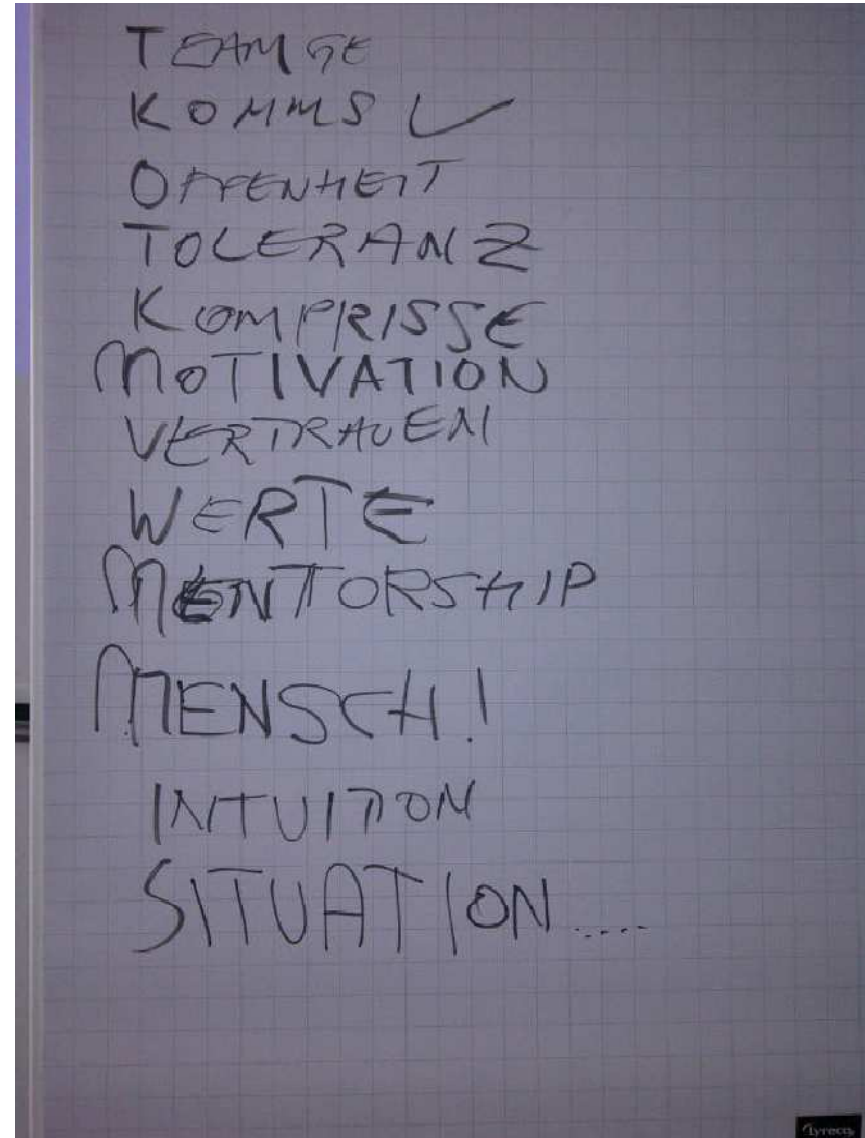 TEAMGE
KOMMS ✓
OFFENHEIT
TOLERANZ
KOMPRISSE
MOTIVATION
VERTRAUEN
WERTE
MENTORSHIP
MENSCH!
INTUITION
SITUATION.....
lyreco